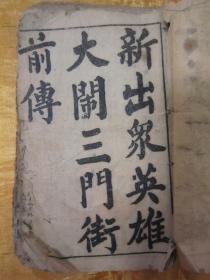 新出眾英雄
大鬧三門街
前傳